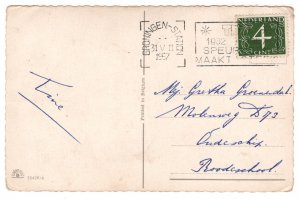 GRONINGEN-STATION
21 V 11
1957
1902
SPEUR
MAAKT
NEDERLAND
4
Tine
Printed in Belgium
Mej. Gretha Groenendal
Molenweg D 92
Oudeschip
Roodeschool